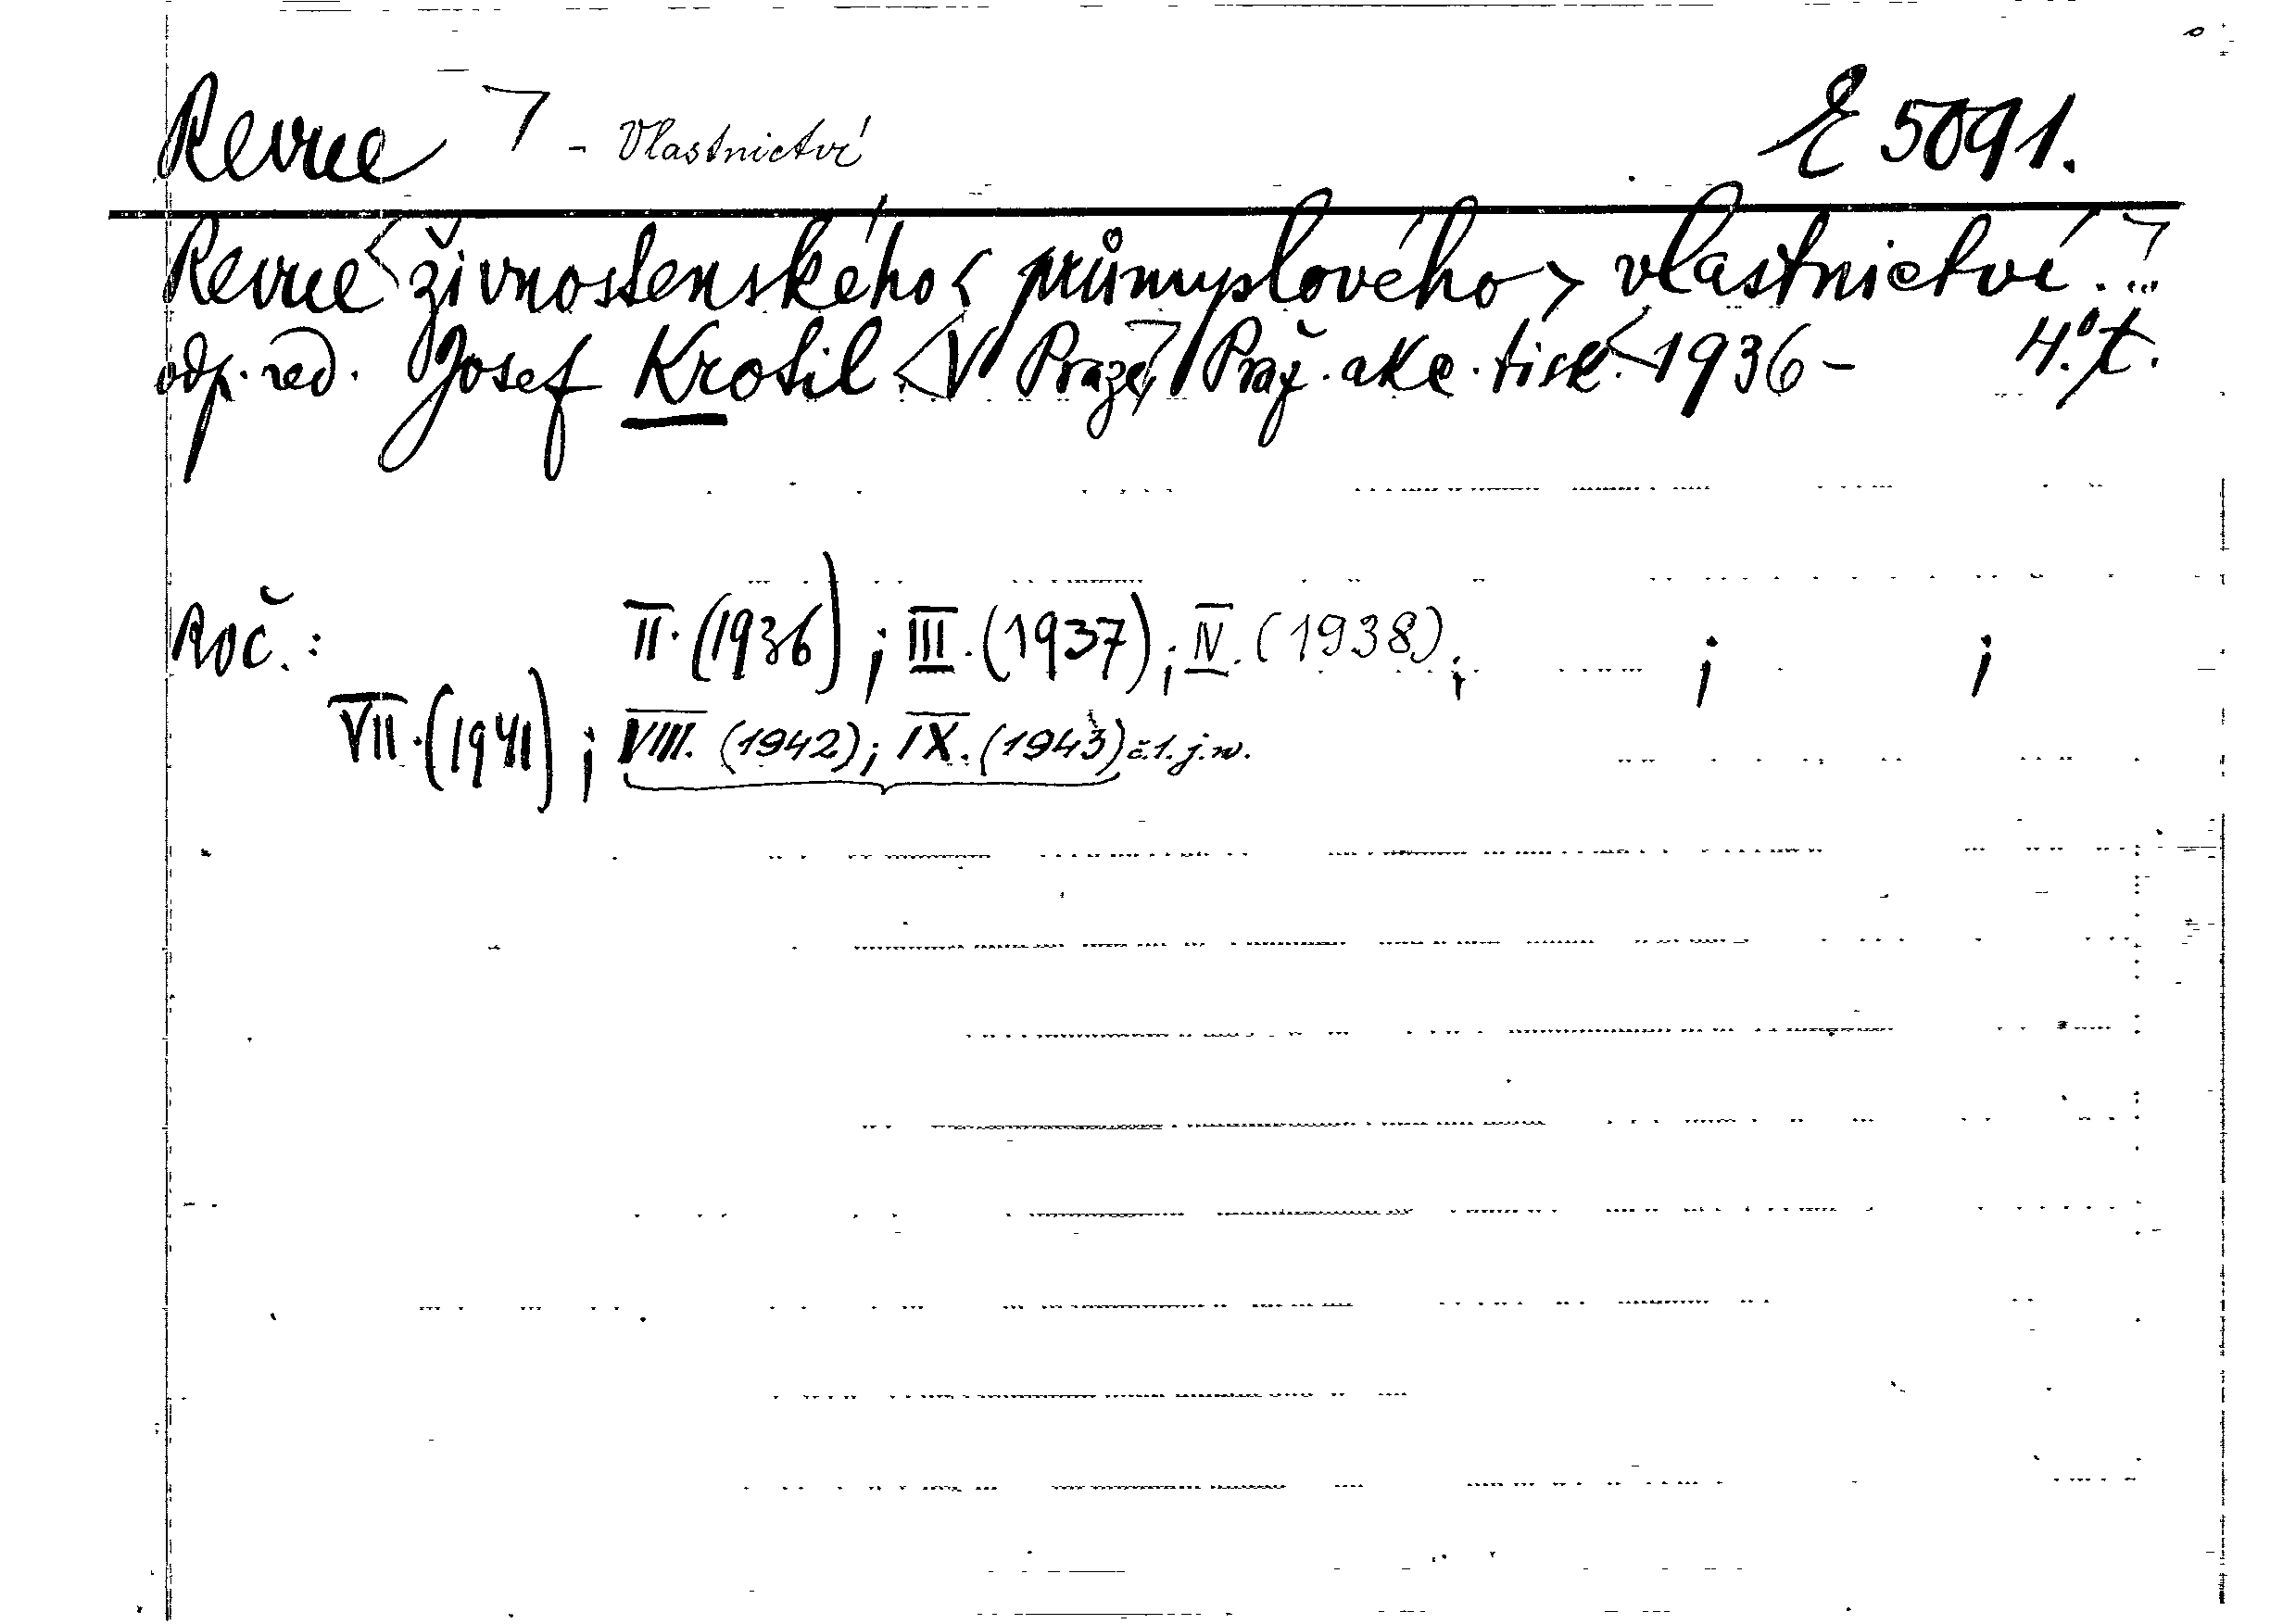 Revue ⌝ - Vlastnictví E 5091.
Revue < živnostenského < průmyslového > vlastnictví. ...
odp. red. Josef Krotil < V Praze, Praž. akc. tisk. 1936 - 4.° t.
Roč.: II. (1936) ; III. (1937) ; IV. (1938) ; ; ;
VII. (1941) ; VIII. (1942) ; IX. (1943) č.1. j.w.